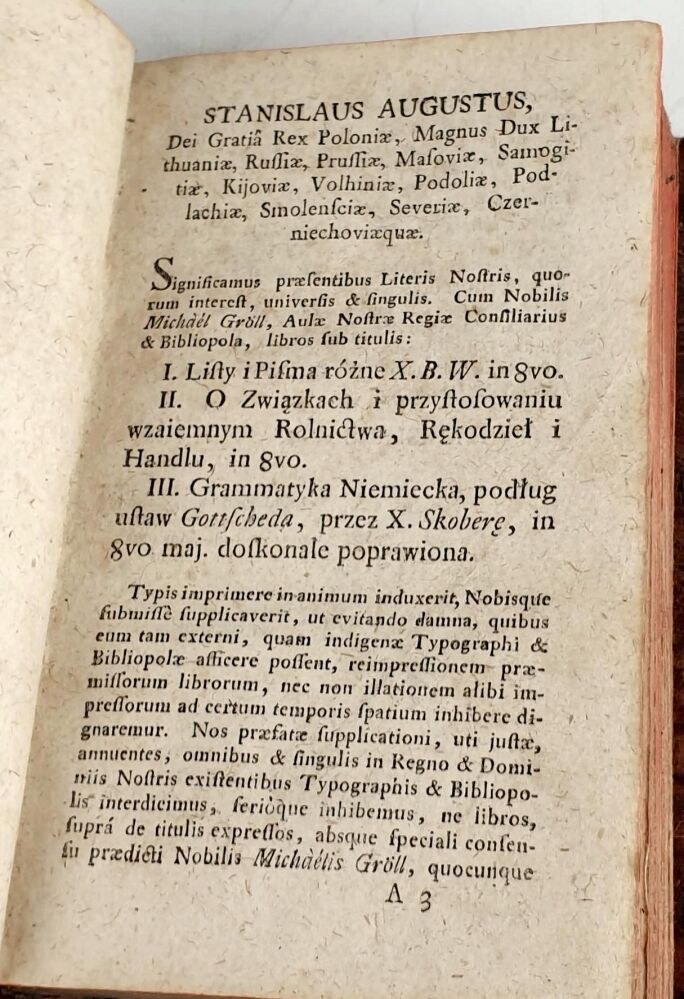 STANISLAUS AUGUSTUS,
Dei Gratiâ Rex Poloniæ, Magnus Dux Li-
thuaniæ, Ruſſiæ, Pruſſiæ, Maſoviæ, Samogi-
tiæ, Kijoviæ, Volhiniæ, Podoliæ, Pod-
lachiæ, Smolenſciæ, Severiæ, Czer-
niechoviæquæ.
Significamus præſentibus Literis Noſtris, quo-
rum intereſt, univerſis & ſingulis. Cum Nobilis
Michàël Gröll, Aulæ Noſtræ Regiæ Conſiliarius
& Bibliopola, libros ſub titulis:
I. Liſty i Piſma różne X. B. W. in 8vo.
II. O Związkach i przyſtoſowaniu
wzaiemnym Rolnictwa, Rękodzieł i
Handlu, in 8vo.
III. Grammatyka Niemiecka, podług
uſtaw Gottſcheda, przez X. Skoberę, in
8vo maj. doſkonale poprawiona.
Typis imprimere in animum induxerit, Nobisque
ſubmiſſè ſupplicaverit, ut evitando damna, quibus
eum tam externi, quam indigenæ Typographi &
Bibliopolæ afficere poſſent, reimpreſſionem præ-
miſſorum librorum, nec non illationem alibi im-
preſſorum ad certum temporis ſpatium inhibere di-
gnaremur. Nos præfatæ ſupplicationi, uti juſtæ,
annuentes, omnibus & ſingulis in Regno & Domi-
niis Noſtris exiſtentibus Typographis & Bibliopo-
lis interdicimus, ſeriòque inhibemus, ne libros,
ſuprá de titulis expreſſos, absque ſpeciali conſen-
ſu prædicti Nobilis Michàëlis Gröll, quocunque
A 3